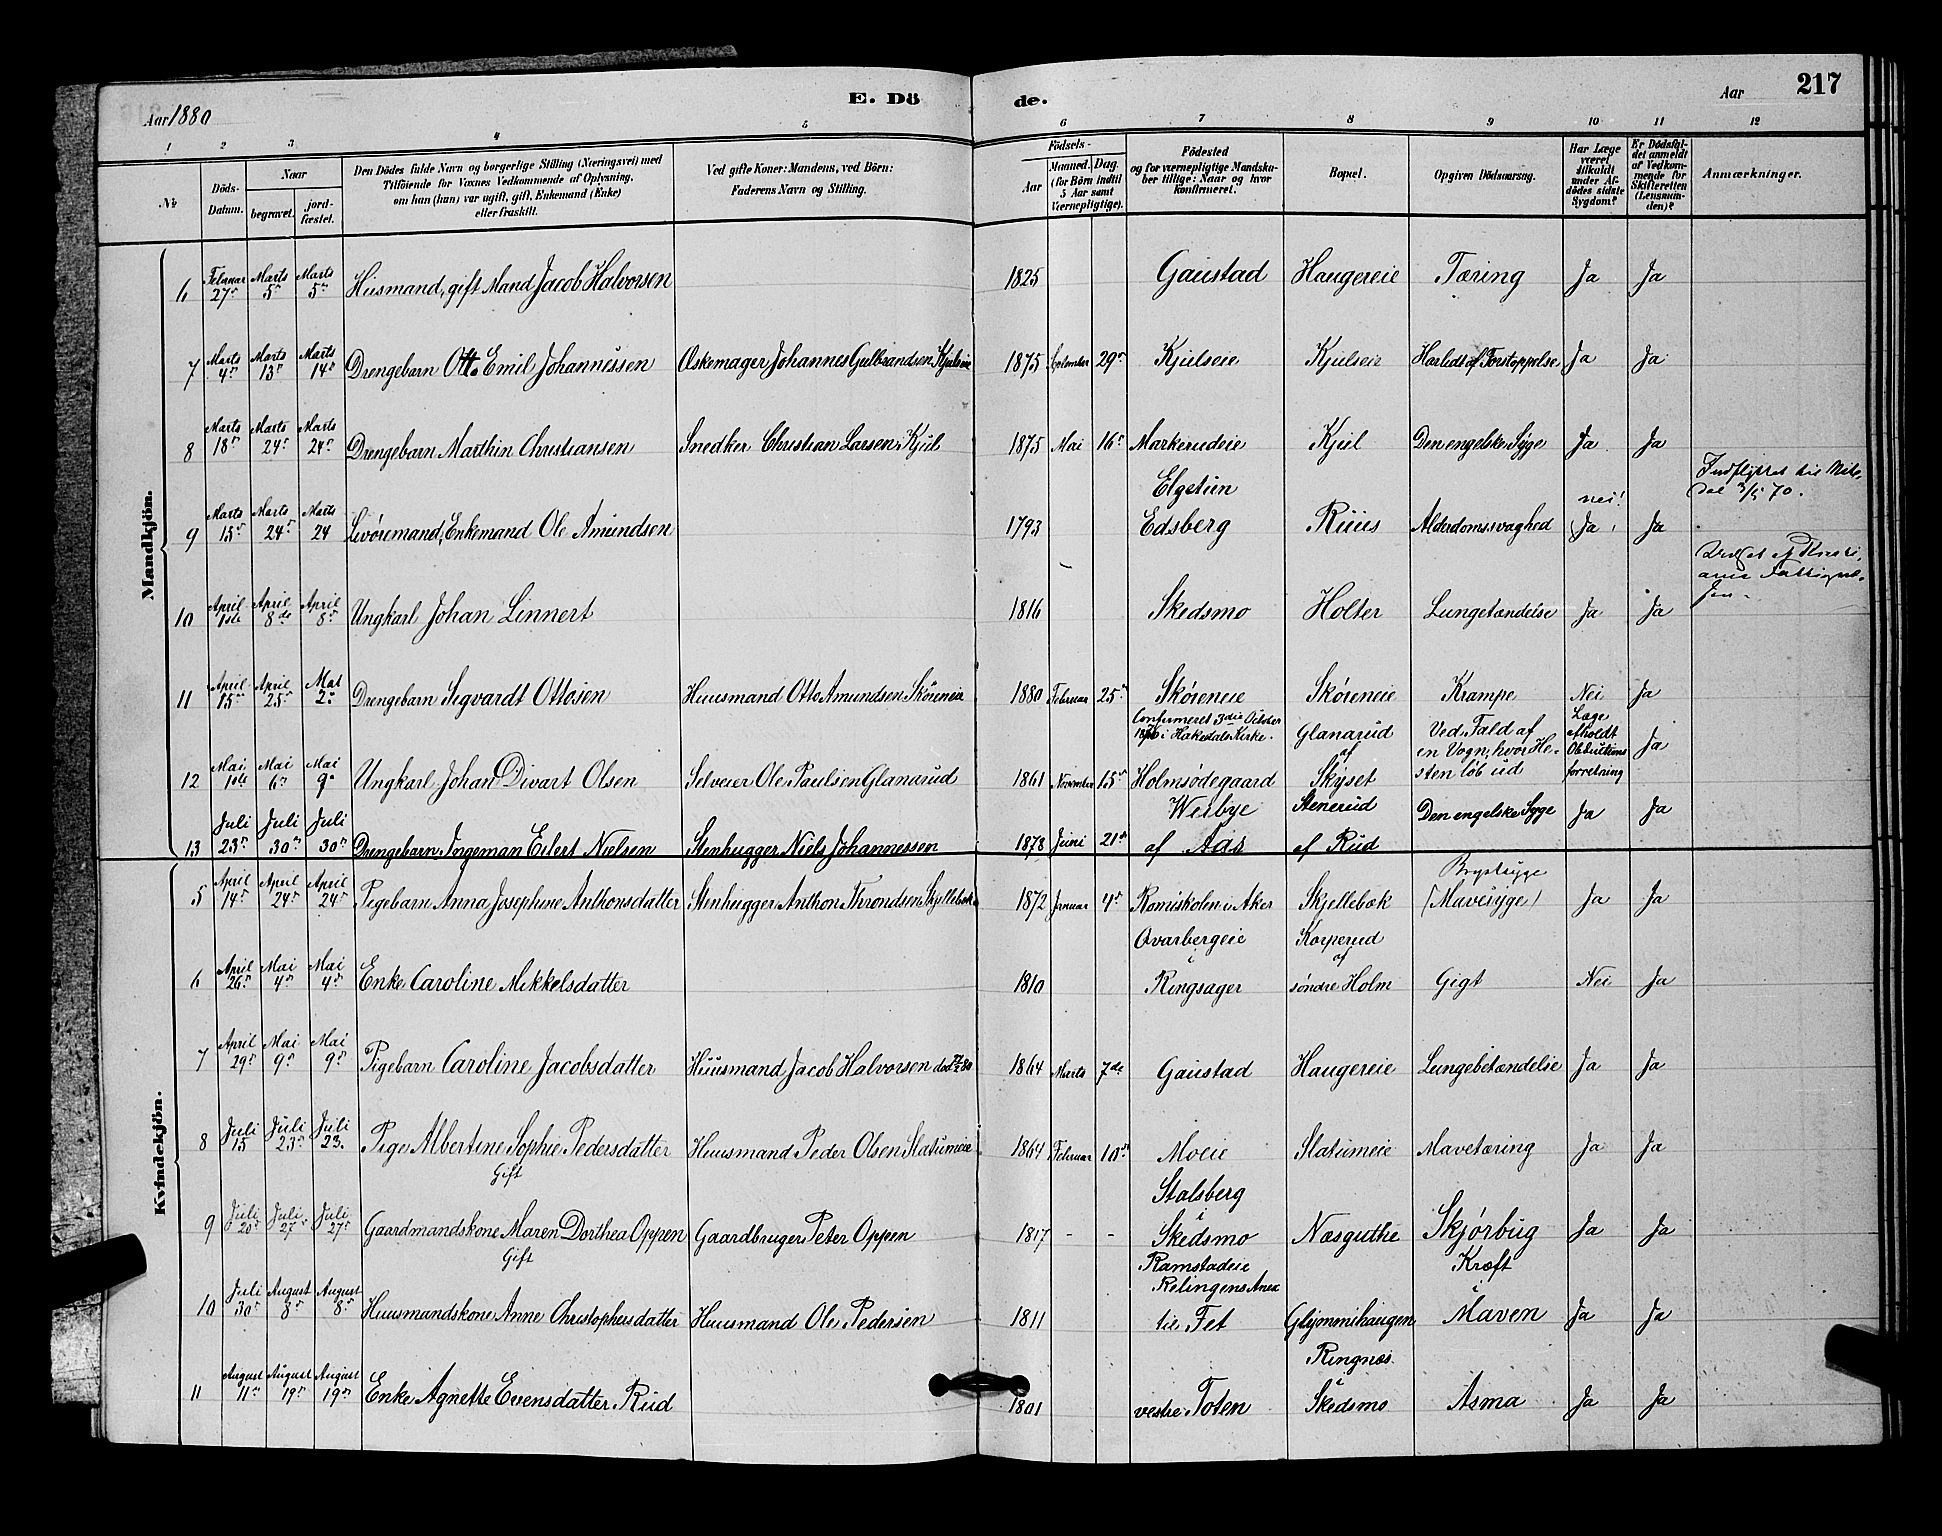 Aar 1880
E. Dö
de.
Aar
217
1 2 3 4 5 6 7 8 9 10 11 12
№
Döds-
Datum.
Naar
begravet.
jord-
fæstet.
Den Dödes fulde Navn og borgerlige Stilling (Næringsvei) med
Tilföiende for Voxnes Vedkommende af Oplysning,
om han (hun) var ugift, gift, Enkemand (Enke)
eller fraskilt.
Ved gifte Koner: Mandens, ved Börn:
Faderens Navn og Stilling.
Födsels-
Aar
Maaned. Dag.
(for Börn indtil
5 Aar samt
Værnepligtige).
Födested
og for værnepligtige Mandska-
ber tillige: Naar og hvor
konfirmeret.
Bopæl.
Opgiven Dödsaarsag.
Har Læge
været
tilkaldt
under Af-
dödes sidste
Sygdom?
Er Dödsfal-
det anmeldt
af Vedkom-
mende for
Skifteretten
(Lensman-
den)?
Anmærkninger.
Mandkjön.
6 Februar 27de Marts 5te Marts 5te Husmand, gift Mand Jacob Halvorsen 1825 Gaustad Haugereie Tæring Ja Ja
7 Marts 4de Marts 13de Marts 14de Drengebarn Otto Emil Johannessen Øskemager Johannes Gulbrandsen Kjulseie 1875 September 29de Kjulseie Kjulseie Haarlidt af Forstoppelse Ja Ja
8 Marts 18de Marts 24de Marts 24de Drengebarn Marthin Christiansen Snedker Christian Larsen, Kjul 1875 Mai 16de Markerudeie Kjul Den engelske Syge Ja Ja
Elgetun
nei!
Indflyttet til Nite-
dal 3/5 70.
9 Marts 15de Marts 24de Marts 24 Levøremand, Enkemand Ole Amundsen 1793 Edsberg Ruus Alderdomssvaghed (Ja) Ja
10 April 1ste April 8de April 8de Ungkarl Johan Linnert 1816 Skedsmo Holter Lungetændelse Ja Ja
11 April 15de April 25de Mai 2de Drengebarn Sigvardt Ottosen Huusmand Otto Amundsen Skøreneie 1880 Februar 25de Skøreneie Skøreneie Krampe Nei Ja
Confirmeret 3die October
1876 i Hakedals Kirke.
Glanarud
af
Ved Fald af
en Vogn, hvor He-
sten løb ud
Læge
afholdt
Obduktions
forretning
Ja
12 Mai 1ste Mai 6te Mai 9de Ungkarl Johan Divart Olsen Selveier Ole Paulsen Glanarud 1861 November 15de Holmsødegaard Skyset
13 Juli 23de Juli 30de Juli 30de Drengebarn Ingeman Eilert Nielsen Stenhugger Niels Johannessen 1878 Juni 21de Weibye af Aas Stenerud af Rud Den engelske Syge Ja Ja
Kvindekjön.
Brystsyge
5 April 14de April 24de April 24de Pigebarn Anna Josephine Anthonsdatter Stenhugger Anthon Throndsen Skjellebæk 1872 Januar 4de Romiskolen i Aker Skjellebæk (Mavesyge) Ja Ja
6 April 26de Mai 4de Mai 4de Enke Caroline Mikkelsdatter 1810 Ovarbergeie i Ringsager Korperud af søndre Holm Gigt Nei Ja
7 April 29de Mai 9de Mai 9de Pigebarn Caroline Jacobsdatter Huusmand Jacob Halvorsen død 27/2 80 1864 Marts 7de Gaustad Haugereie Lungebetændelse Ja Ja
8 Juli 15 Juli 23de Juli 23. Pige Albertine Sophie Pedersdatter Huusmand Peder Olsen Slatumeie 1864 Februar 10de Moeie Slatumeie Mavetæring Ja Ja
Gift
9 Juli 20de Juli 27de Juli 27de Gaardmandskone Maren Dorthea Oppen Gaardbruger Peter Oppen 1817 - - Stalsberg i Skedsmo Næsguthe Skjørbug Ja Ja
Gift
10 Juli 30de August 8de August 8de Huusmandskone Anne Christophersdatter Huusmand Ole Pedersen 1811 Ramstadeie Relingens Anex til Fet Glymmihaugen Kræft i Maven Ja Ja
11 August 11te August 19de August 19de Enke Agnette Evensdatter Rud 1801 vestre Toten Ringnæs i Skedsmo Asma Ja Ja